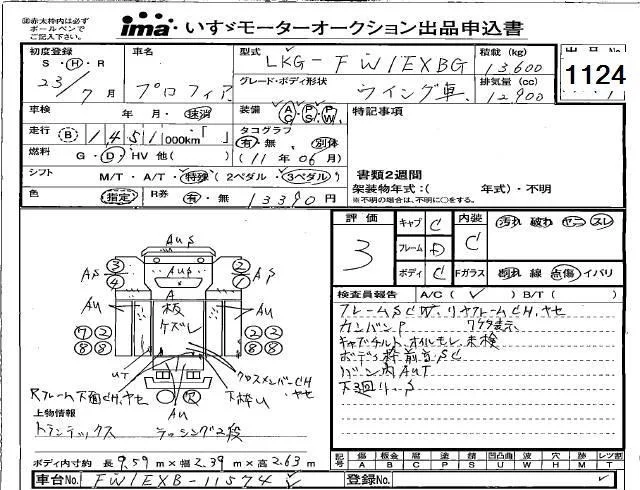 ㊟赤太枠内は必ず
ボールペンで
ご記入下さい。
ima いすゞモーターオークション出品申込書
初度登録 車名 型式 積載 (kg) 出品No
S・H・R LKG-FW1EXBG 13,600 1124
23/7月 プロフィア グレード・ボディ形状 排気量 (cc)
ウイング車 12,900
車検 年・月・速消 装備 AC PS PW 特記事項
走行 B 1451000km「」 タコグラフ
有・無 別体
燃料 G・D・HV 他( ) (11年06月) 書類2週間
シフト M/T・A/T・特殊(2ペダル/3ペダル) 架装物年式:( 年式)・不明
※不明の場合は、不明に○をする。
色 指定 R券 有・無 13390円
評価 キャブ C 内装 汚れ 破れ ヤニ スレ
3 フレーム D C
ボディ C Fガラス 割れ 線 点傷 イバリ
検査員報告 A/C( ) B/T( )
フレームSCW.リヤフレームCH.ヤセ
カンバンP
キャブチルト、オイルモレ未検
ボディ枠前首SC
バン内AUT
下3回り.S
Aus
③④ Aus ②①
As A As
Au 板 Au
ケズレ
⑦② ②②
⑧⑧ ⑧⑧
UT クロスメンバーCH.ヤセ
Rフレーム下面CH.ヤセ 下枠U
Au
上物情報
トランテックス ラッシング2段
ボディ内寸約 長9.59m×幅2.39m×高2.63m
記号 傷 板金 層 塗 錆 凹凸曲 波 穴 痕 レツ割
A B C P S U W H M T
車台No. FW1EXB-11574 登録No.